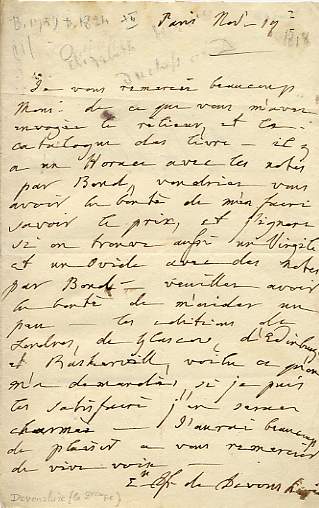 Paris Nov. 19
1818
Elizabeth
Duchess
Je vous remercie beaucoup
Monsr. de ce que vous m'avez
envoyée le relieur, et le
catalogue des livre — il y
a un Horace avec les notes
par Bond, voudriez vous
avoir la bonté de m'en faire
savoir le prix, et j'ignore
si on trouve aussi un Virgile
et un Ovide avec des notes
par Bond — veuillez avoir
la bonté de m'aider un
peu — les editions de
Londres, de Glascow, d'Edinburg
et Baskerville, voila ce qu'on
m'a demandée, si je puis
les satisfaire j'en serais
charmée — J'aurai beaucoup
de plaisir a vous remercier
de vive voix —
de Devonshire
Devonshire